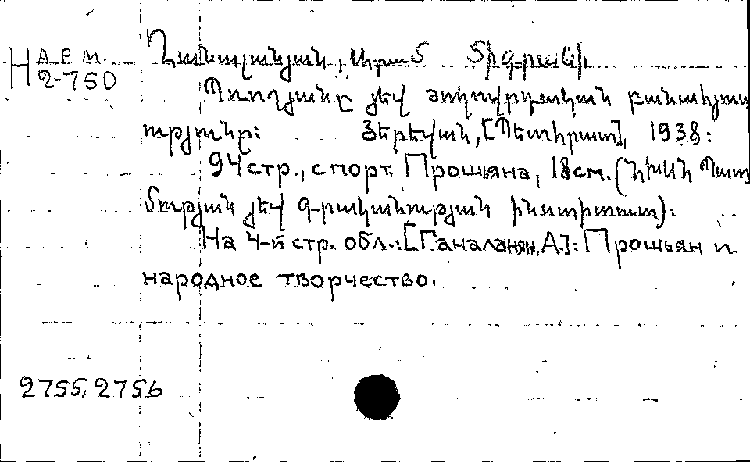 Н Арм.
2-750
Ղանալանյան, Արամ Տիգրանի.
Պռոշյանը յեվ ժողովրդական բանահյու
սությունը: Յերեվան, [Պետհրատ], 1938:
94 стр., с порт. Прошяна, 18 см. (ԽՍՀՄ Պատ
մության յեվ Գրականության ինստիտուտ):
На 4-й стр. обл.: [Ганаланян, А.]: Прошьян и
народное творчество.
2755, 2756